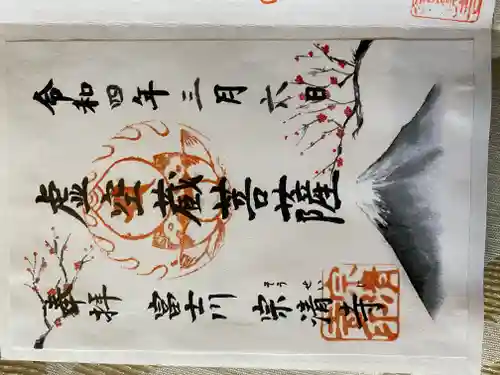 令和四年三月六日
虚空蔵菩薩
奉拝 富士川 宗清寺
そうせい